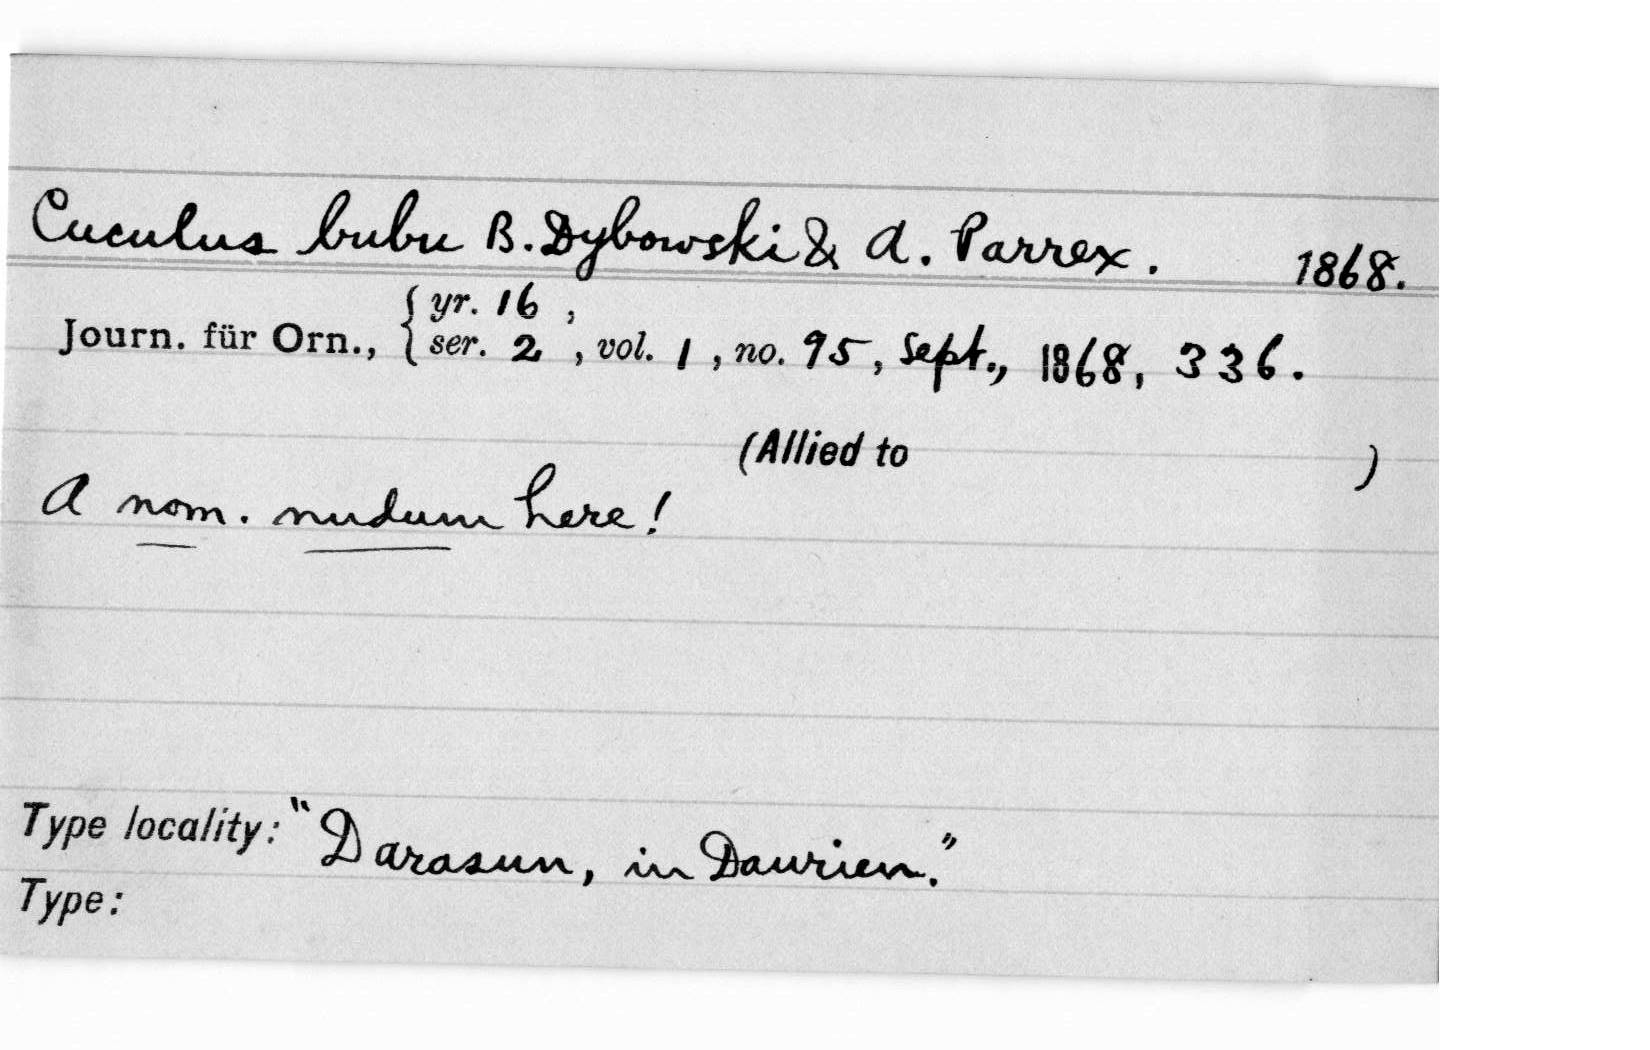 Cuculus bubu B. Dybowski & A. Parrex. 1868.
Journ. für Orn., { yr. 16 ,
ser. 2 , vol. 1 , no. 95, Sept., 1868, 336.
(Allied to )
A nom. nudum here!
Type locality: "Darasun, in Daurien."
Type: